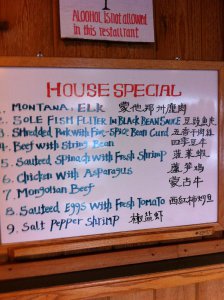 ALCOHOL IS not allowed
in this restaurant
HOUSE SPECIAL
1. MONTANA, ELK 蒙他那州鹿肉
2. SOLE FISH FLITER IN BLACK BEAN SAUCE 豆豉魚片
3. Shredded Pork with Five-Spice Bean Curd 五香干肉絲
4. Beef with String Bean 四季豆牛
5. Sauteed Spinach with Fresh Shrimp 菠菜蝦
6. Chicken with Asparagus 蘆筍鸡
7. Mongolian Beef 蒙古牛
8. Sauteed Eggs with Fresh Tomato 西紅柿炒蛋
9. Salt Pepper Shrimp 椒盐虾